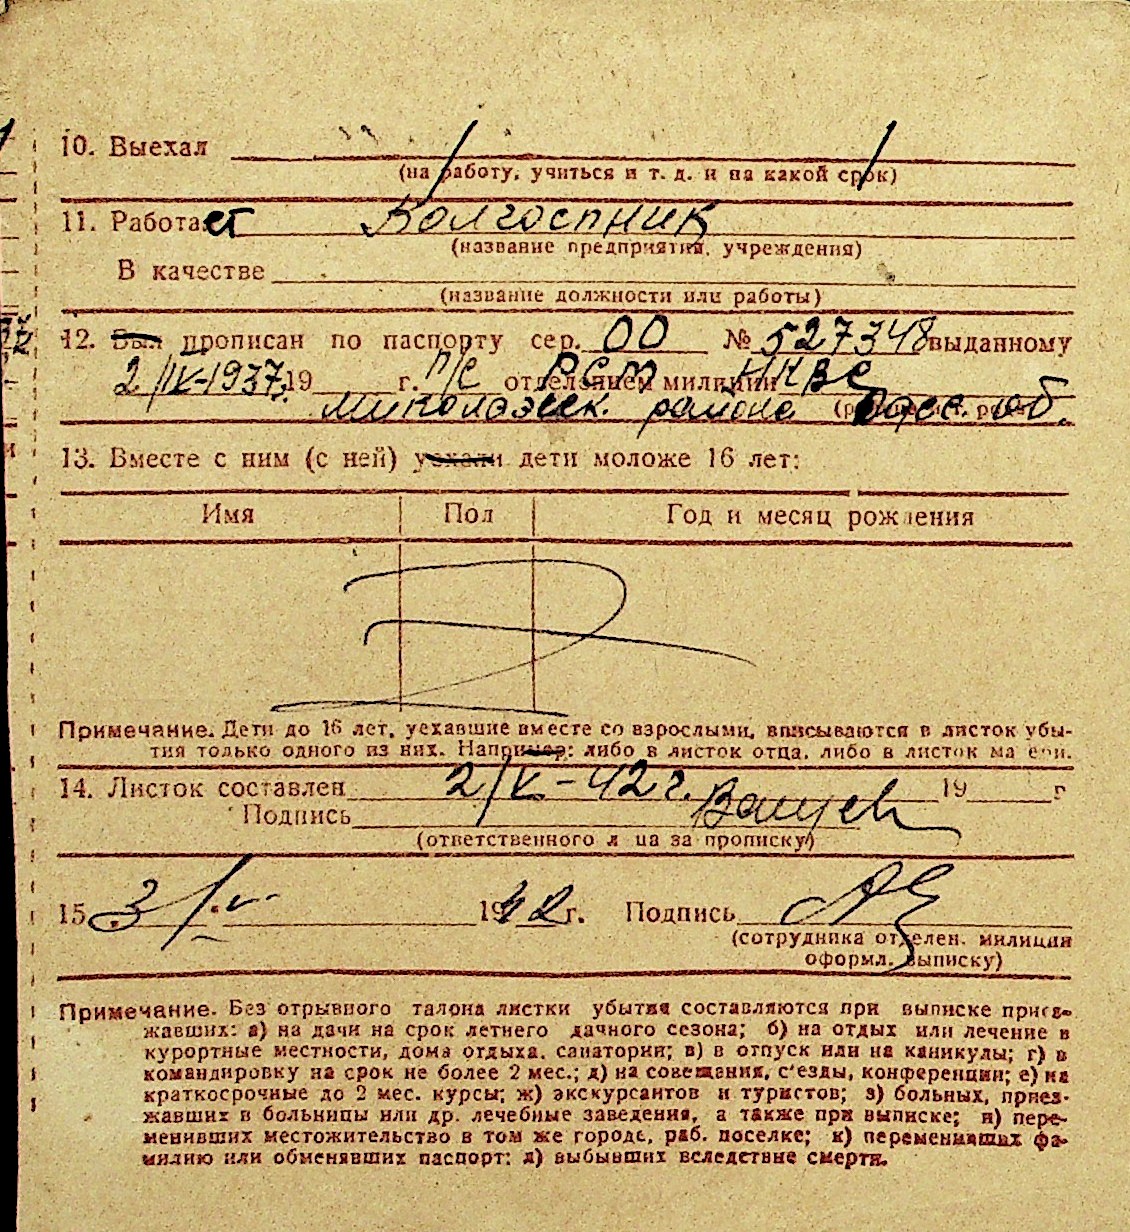 10. Выехал
(на работу, учиться и т. д. и на какой срок)
11. Работает Колгоспник
(название предприятия, учреждения)
В качестве
(название должности или работы)
12. Был прописан по паспорту сер. ОО № 527348 выданному
2/IX-1937. 19 г. п/с отделением РСМ милиции НКВС
Миколаэвск. района Одес. об.
13. Вместе с ним (с ней) уехали дети моложе 16 лет:
Имя Пол Год и месяц рождения
Примечание. Дети до 16 лет, уехавшие вместе со взрослыми, вписываются в листок убы-
тия только одного из них. Например: либо в листок отца, либо в листок матери.
14. Листок составлен 2/X-42 г. 19 г
Подпись
(ответственного лица за прописку)
15. 3/ 1942 г. Подпись
(сотрудника отделен. милиции
оформл. выписку)
Примечание. Без отрывного талона листки убытия составляются при выписке приез-
жавших: а) на дачи на срок летнего дачного сезона; б) на отдых или лечение в
курортные местности, дома отдыха, санатории; в) в отпуск или на каникулы; г) в
командировку на срок не более 2 мес.; д) на совещания, с'езды, конференции; е) на
краткосрочные до 2 мес. курсы; ж) экскурсантов и туристов; з) больных, приез-
жавших в больницы или др. лечебные заведения, а также при выписке; и) пере-
менивших местожительство в том же городе, раб. поселке; к) переменивших фа-
милию или обменявших паспорт; л) выбывших вследствие смерти.